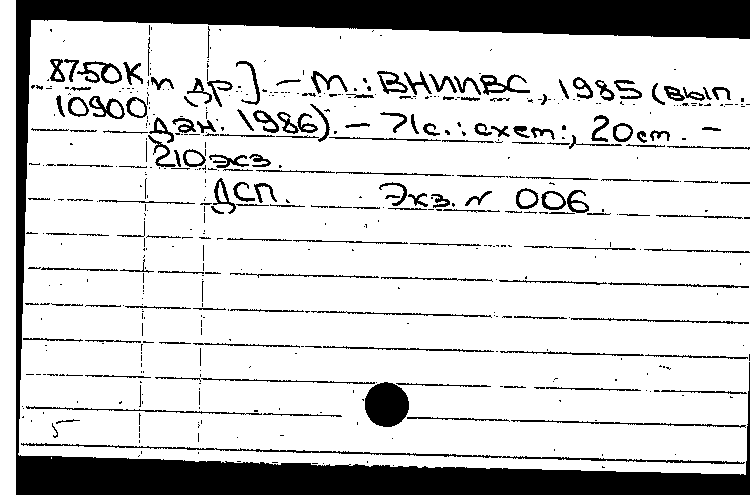 87-50К и др.] – М.: ВНИИВС, 1985 (вып.
10900 дан. 1986). – 71с.: схем.; 20см. –
210экз.
ДСП. Экз. № 006.
5